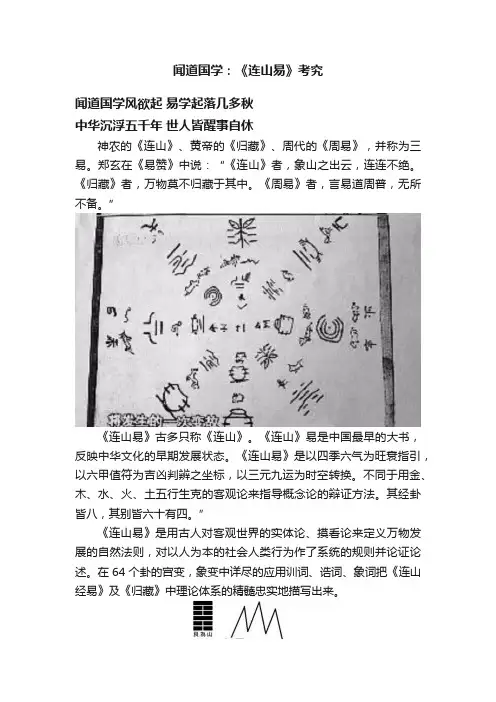 闻道国学：《连山易》考究
闻道国学风欲起 易学起落几多秋
中华沉浮五千年 世人皆醒事自休
神农的《连山》、黄帝的《归藏》、周代的《周易》，并称为三
易。郑玄在《易赞》中说：“《连山》者，象山之出云，连连不绝。
《归藏》者，万物莫不归藏于其中。《周易》者，言易道周普，无所
不备。”
《连山易》古多只称《连山》。《连山》易是中国最早的大书，
反映中华文化的早期发展状态。《连山易》是以四季六气为旺衰指引，
以六甲值符为吉凶判辨之坐标，以三元九运为时空转换。不同于用金、
木、水、火、土五行生克的客观论来指导概念论的辩证方法。其经卦
皆八，其别皆六十有四。”
《连山易》是用古人对客观世界的实体论、摸看论来定义万物发
展的自然法则，对以人为本的社会人类行为作了系统的规则并论证论
述。在 64 个卦的宫变，象变中详尽的应用训词、诰词、象词把《连山
经易》及《归藏》中理论体系的精髓忠实地描写出来。
艮为山